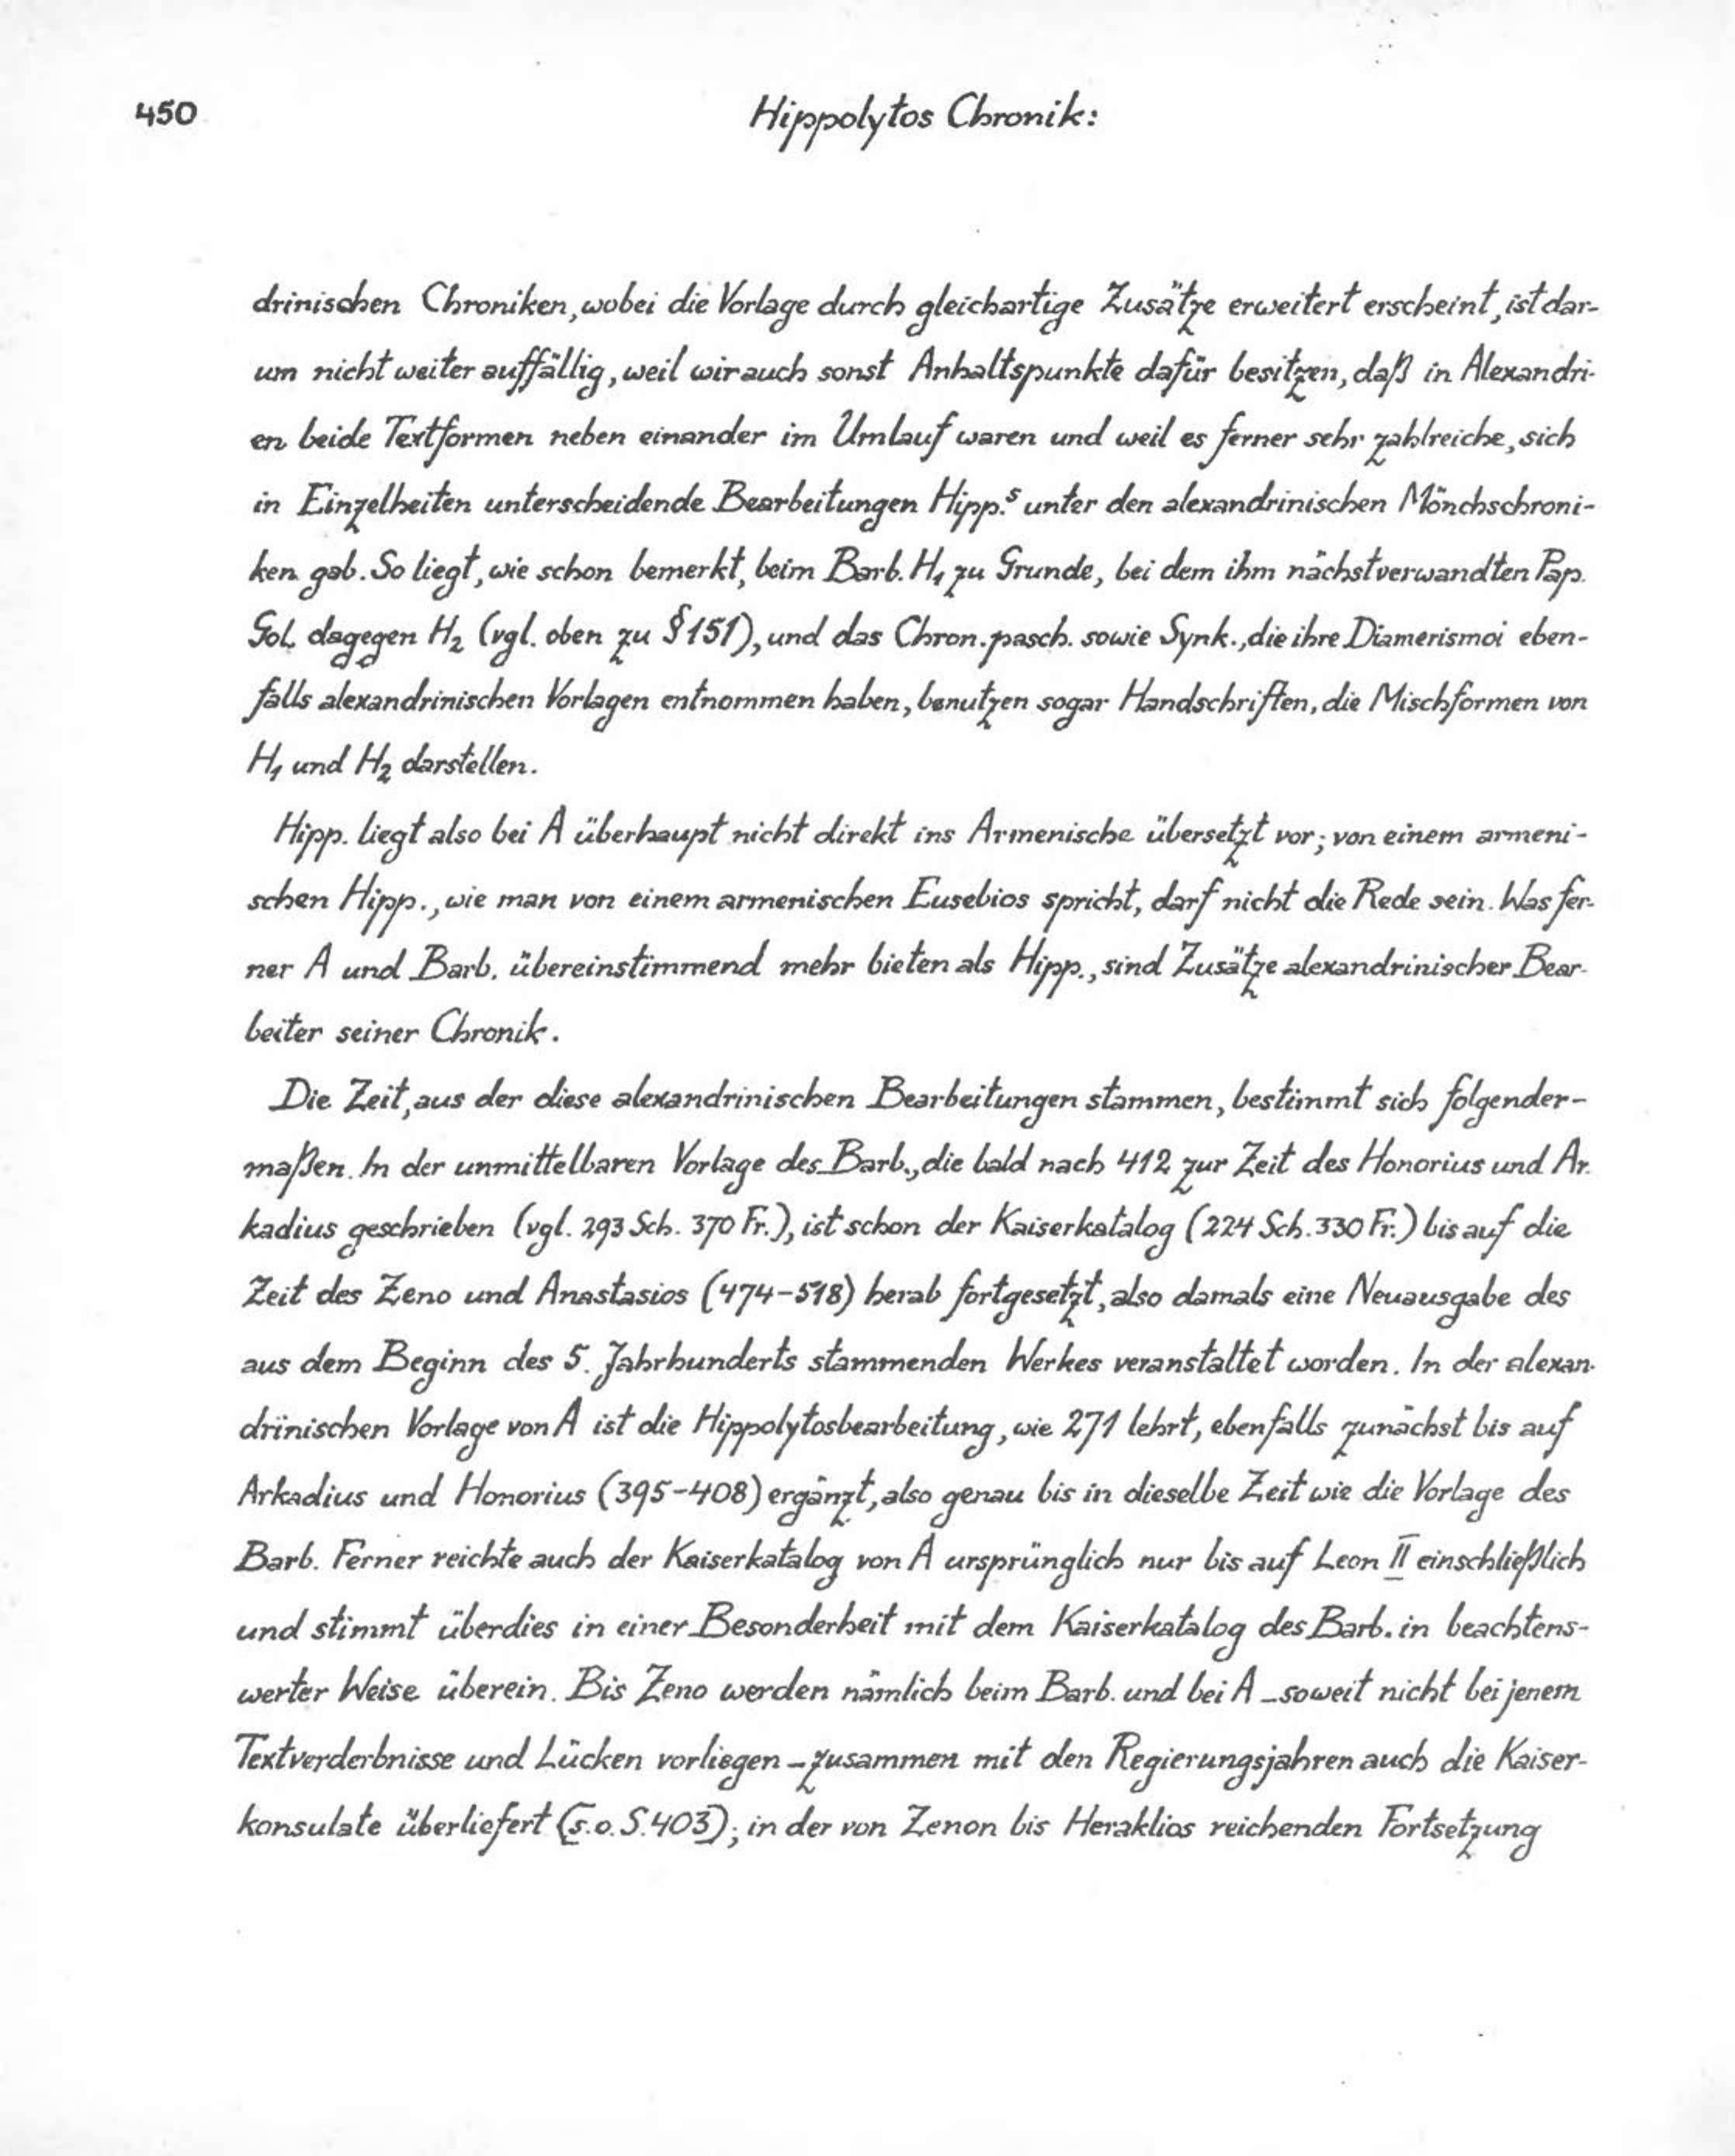 450
Hippolytos Chronik:
drinischen Chroniken, wobei die Vorlage durch gleichartige Zusätze erweitert erscheint, ist dar-
um nicht weiter auffällig, weil wir auch sonst Anhaltspunkte dafür besitzen, daß in Alexandri-
en beide Textformen neben einander im Umlauf waren und weil es ferner sehr zahlreiche, sich
in Einzelheiten unterscheidende Bearbeitungen Hipp.s unter den alexandrinischen Mönchschroni-
ken gab. So liegt, wie schon bemerkt, beim Barb. H₁ zu Grunde, bei dem ihm nächstverwandten Pap.
Gol. dagegen H₂ (vgl. oben zu § 151), und das Chron. pasch. sowie Synk., die ihre Diamerismoi eben-
falls alexandrinischen Vorlagen entnommen haben, benutzen sogar Handschriften, die Mischformen von
H₁ und H₂ darstellen.
Hipp. liegt also bei A überhaupt nicht direkt ins Armenische übersetzt vor; von einem armeni-
schen Hipp., wie man von einem armenischen Eusebios spricht, darf nicht die Rede sein. Was fer-
ner A und Barb. übereinstimmend mehr bieten als Hipp., sind Zusätze alexandrinischer Bear-
beiter seiner Chronik.
Die Zeit, aus der diese alexandrinischen Bearbeitungen stammen, bestimmt sich folgender-
maßen. In der unmittelbaren Vorlage des Barb., die bald nach 412 zur Zeit des Honorius und Ar.
kadius geschrieben (vgl. 293 Sch. 370 Fr.), ist schon der Kaiserkatalog (224 Sch. 330 Fr.) bis auf die
Zeit des Zeno und Anastasios (474-518) herab fortgesetzt, also damals eine Neuausgabe des
aus dem Beginn des 5. Jahrhunderts stammenden Werkes veranstaltet worden. In der alexan-
drinischen Vorlage von A ist die Hippolytosbearbeitung, wie 271 lehrt, ebenfalls zunächst bis auf
Arkadius und Honorius (395-408) ergänzt, also genau bis in dieselbe Zeit wie die Vorlage des
Barb. Ferner reichte auch der Kaiserkatalog von A ursprünglich nur bis auf Leon II einschließlich
und stimmt überdies in einer Besonderheit mit dem Kaiserkatalog des Barb. in beachtens-
werter Weise überein. Bis Zeno werden nämlich beim Barb. und bei A - soweit nicht bei jenem
Textverderbnisse und Lücken vorliegen - zusammen mit den Regierungsjahren auch die Kaiser-
konsulate überliefert (s. o. S. 403); in der von Zenon bis Heraklios reichenden Fortsetzung